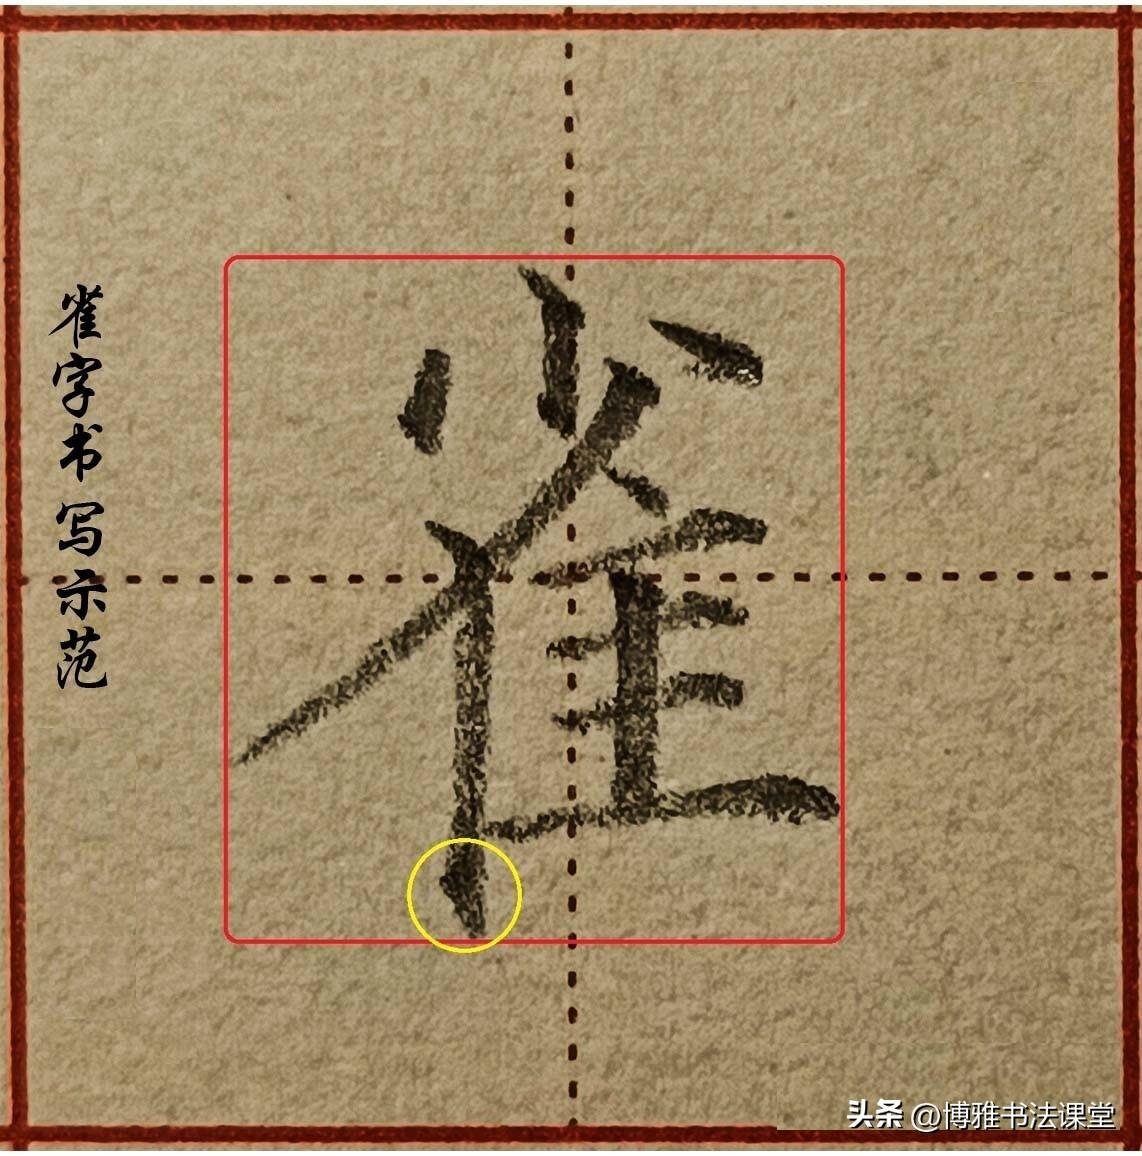 雀字书写示范
雀
头条 @博雅书法课堂